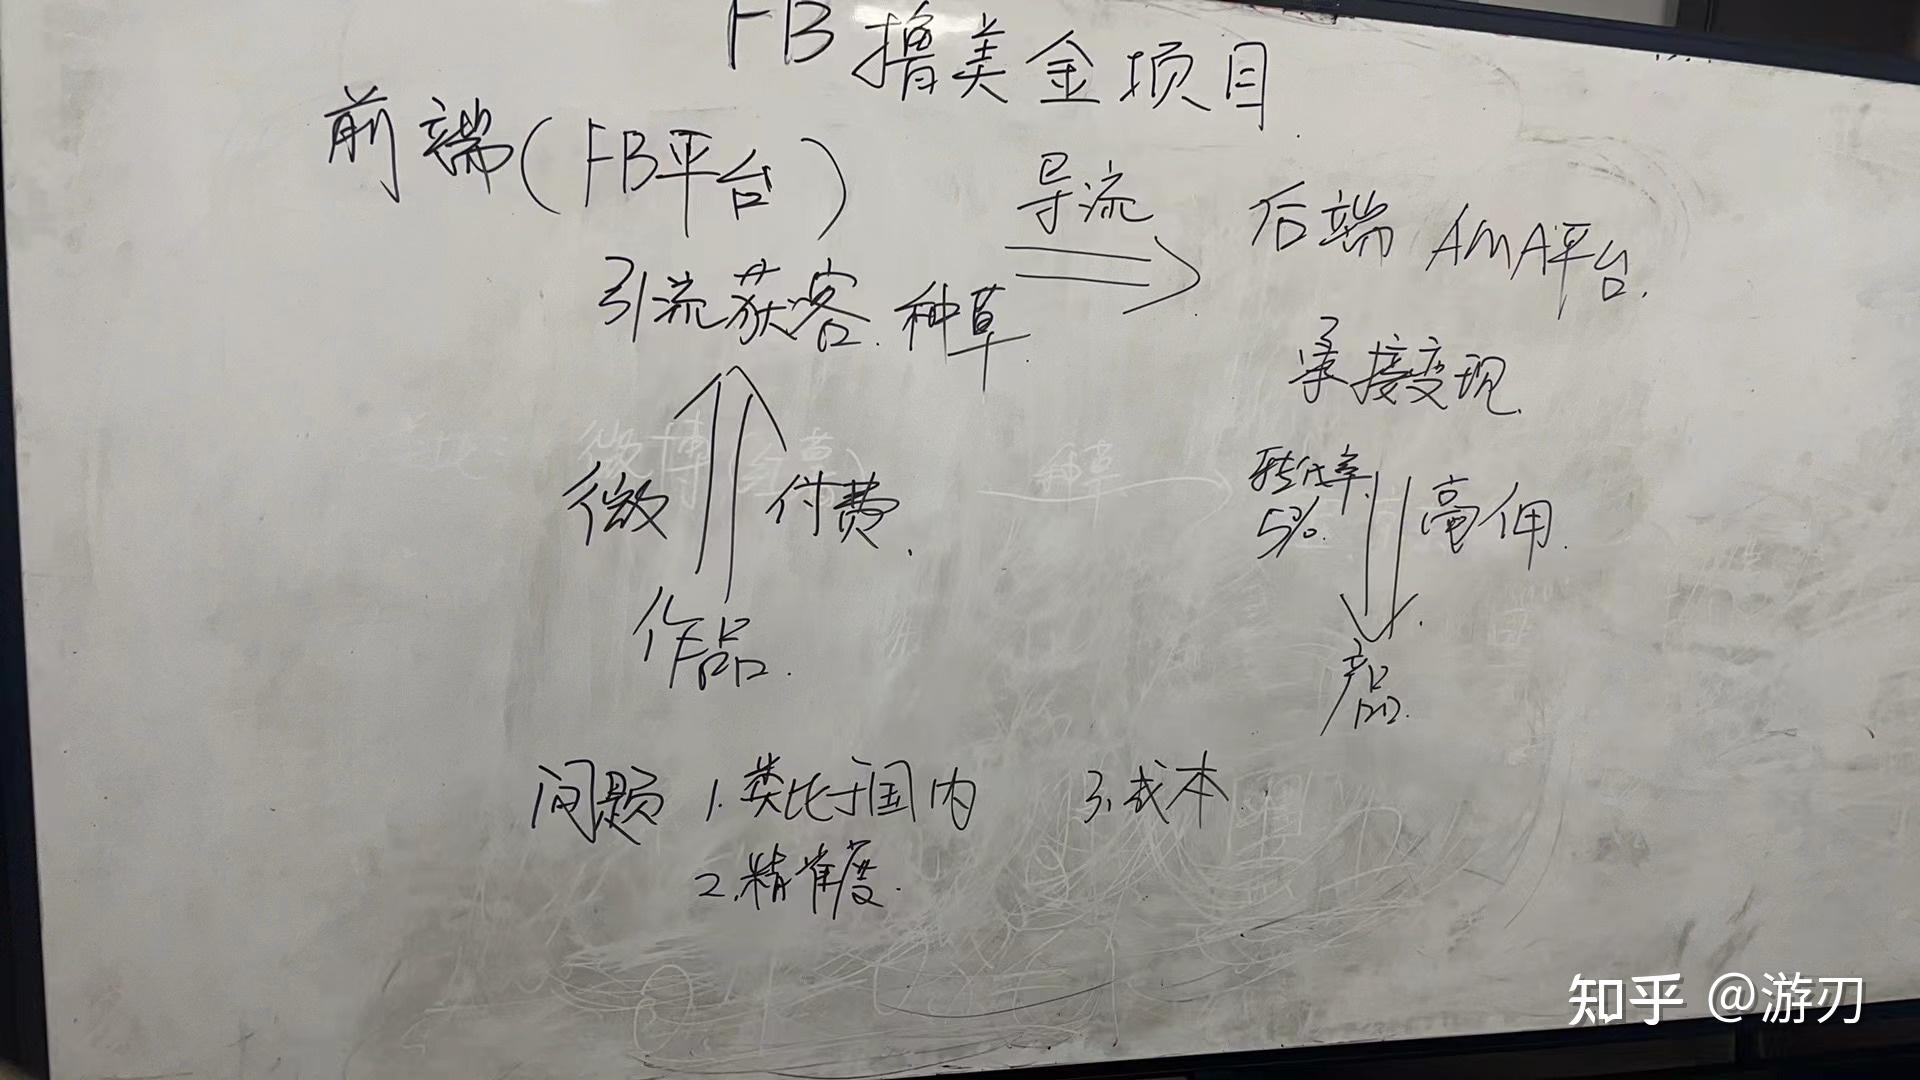 FB撸美金项目.
前端(FB平台)
导流
后端 AMA平台.
引流获客.种草.
承接变现.
微 付费.
转化率 5%. 高佣.
作品.
产品.
问题 1.类比于国内 3.成本.
2.精准度.
种草
知乎 @游刃